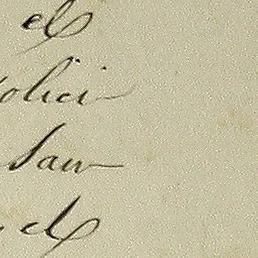 el
olici
Jau
el